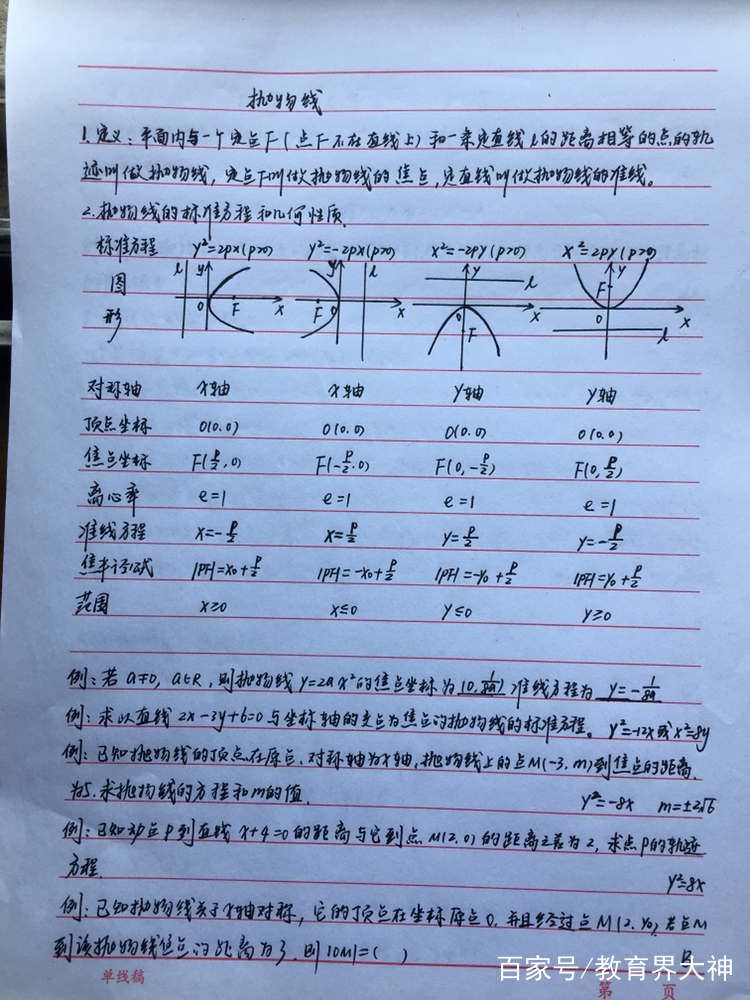 抛物线
1.定义：平面内与一个定点F（点F不在直线上）和一条定直线l的距离相等的点的轨
迹叫做抛物线，定点F叫做抛物线的焦点，定直线叫做抛物线的准线。
2.抛物线的标准方程和几何性质
标准方程 y²=2px(p>0) y²=-2px(p>0) x²=-2py(p>0) x²=2py(p>0)
图 l y O F x y l F O x y l O F x y F O x l
形
对称轴 x轴 x轴 y轴 y轴
顶点坐标 O(0.0) O(0.0) O(0.0) O(0.0)
焦点坐标 F(p/2,0) F(-p/2.0) F(0,-p/2) F(0,p/2)
离心率 e=1 e=1 e=1 e=1
准线方程 x=-p/2 x=p/2 y=p/2 y=-p/2
焦半径公式 |PF|=x₀+p/2 |PF|=-x₀+p/2 |PF|=-y₀+p/2 |PF|=y₀+p/2
范围 x≥0 x≤0 y≤0 y≥0
例：若a≠0，a∈R，则抛物线y=2ax²的焦点坐标为(0,1/8a)准线方程为 y=-1/8a
例：求以直线2x-3y+6=0与坐标轴的交点为焦点的抛物线的标准方程。y²=-12x或x²=8y
例：已知抛物线的顶点在原点，对称轴为x轴，抛物线上的点M(-3,m)到焦点的距离
为5.求抛物线的方程和m的值. y²=-8x m=±2√6
例：已知动点P到直线x+4=0的距离与它到点M(2,0)的距离之差为2，求点P的轨迹
方程. y²=8x
例：已知抛物线关于x轴对称，它的顶点在坐标原点O.并且经过点M(2,y₀).若点M
到该抛物线焦点的距离为3.则|OM|=( ) B
单线稿 第 页
百家号/教育界大神